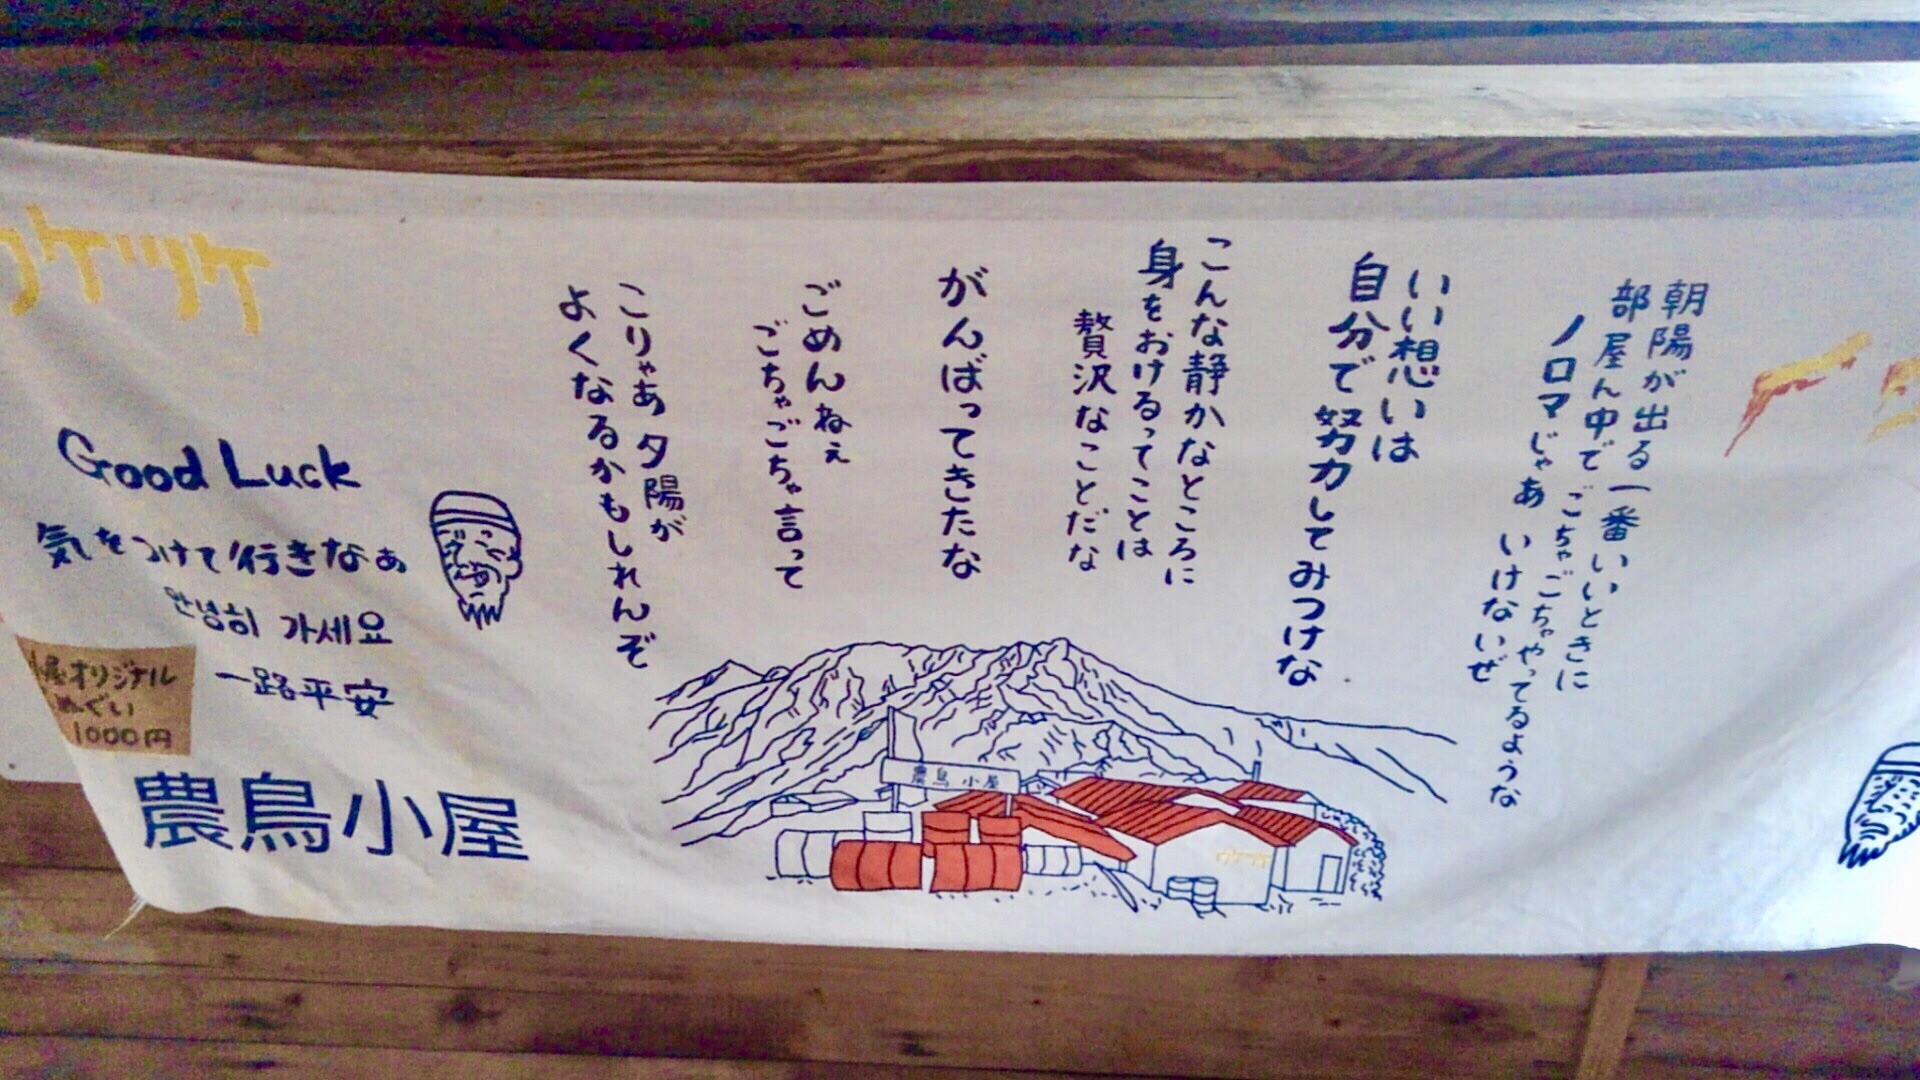 朝陽が出る一番いいときに
部屋ん中でごちゃごちゃやってるような
ノロマじゃあ いけないぜ
いい想いは
自分で努力してみつけな
こんな静かなところに
身をおけるってことは
贅沢なことだな
がんばってきたな
ごめんねぇ
ごちゃごちゃ言って
こりゃあ夕陽が
よくなるかもしれんぞ
ケツケ
Good Luck
気をつけて行きなぁ
안녕히 가세요
一路平安
屋オリジナル
ぬぐい
1000円
農鳥小屋
農鳥小屋